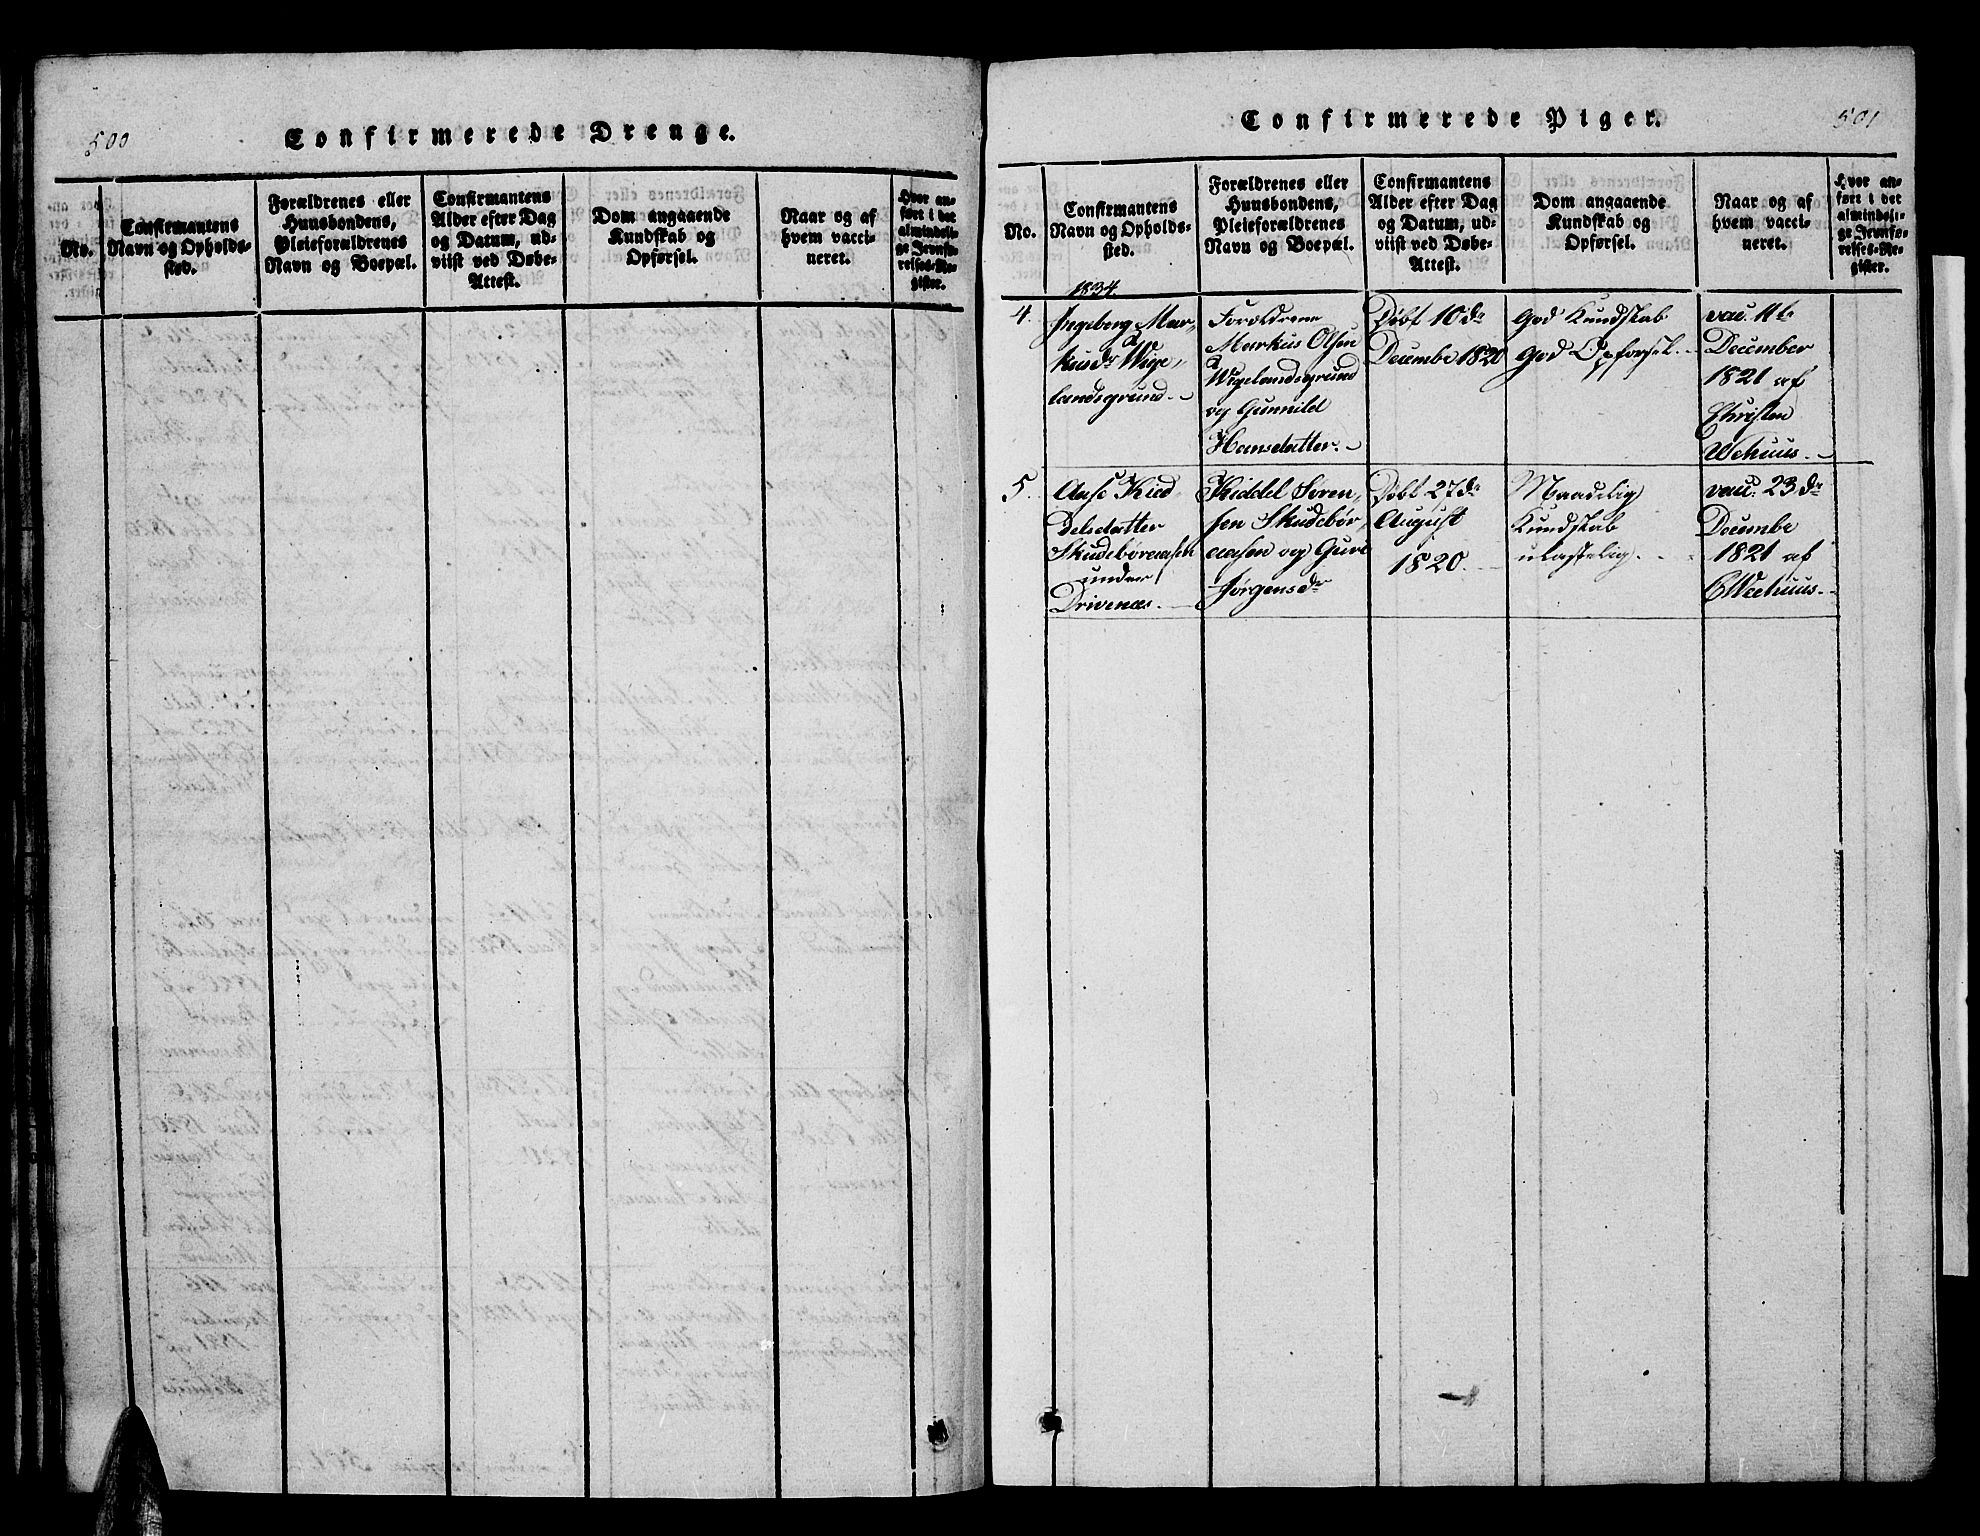 500
Confirmerede Drenge.
No.
Confirmantens
Navn og Opholds-
sted.
Forældrenes eller
Huusbondens,
Pleieforældrenes
Navn og Boepæl.
Confirmantens
Alder efter Dag
og Datum, ud-
viist ved Døbe-
Attest.
Dom angaaende
Kundskab og
Opførsel.
Naar og af
hvem vacci-
neret.
Hvor an-
ført i det
almindeli-
ge Jevnfø-
relses-Re-
gister.
Confirmerede Piger.
501
No.
Confirmantens
Navn og Opholds-
sted.
Forældrenes eller
Huusbondens,
Pleieforældrenes
Navn og Boepæl.
Confirmantens
Alder efter Dag
og Datum, ud-
viist ved Døbe-
Attest.
Dom angaaende
Kundskab og
Opførsel.
Naar og af
hvem vacci-
neret.
Hvor an-
ført i det
almindeli-
ge Jevnfø-
relses-Re-
gister.
1834.
4.
Ingeborg Mar-
kusdr Wige-
landsgrund.
Forældrene
Markus Olsen
Wigelandsgrund
og Gunnild
Hansdatter.
Døbt 10de
Decembe 1820
God Kundskab
God Opførsel.
vac. 11te
December
1821 af
Christen
Wehuus.
5.
Aase Kied-
delsdatter
Skudebøraasen
under
Drivenæs.
Kiddel Søren-
sen Skudebør-
aasen og Guri
Jørgensdr
Døbt 27de
August
1820.
Maadelig
Kundskab
ulastelig.
vac. 23de
Decembe
1821 af
C Weehuus.